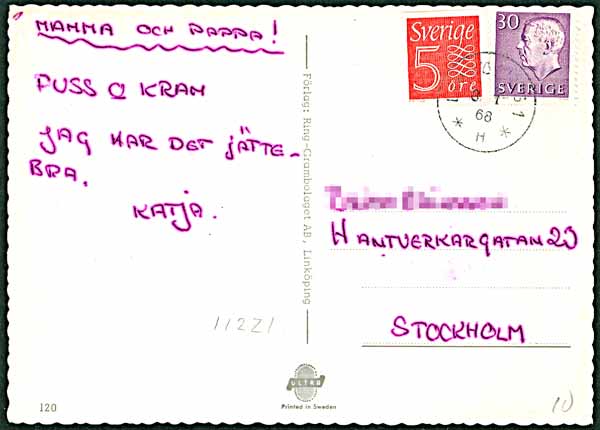 MAMMA OCH PAPPA!
PUSS O KRAM
JAG HAR DET JÄTTE-
BRA.
KATJA.
11221
120
Förlag: Ring-Grambolaget AB, Linköping
ULTRA
Printed in Sweden
Sverige
5
öre
30
SVERIGE
66
H
HANTVERKARGATAN 29
STOCKHOLM
10